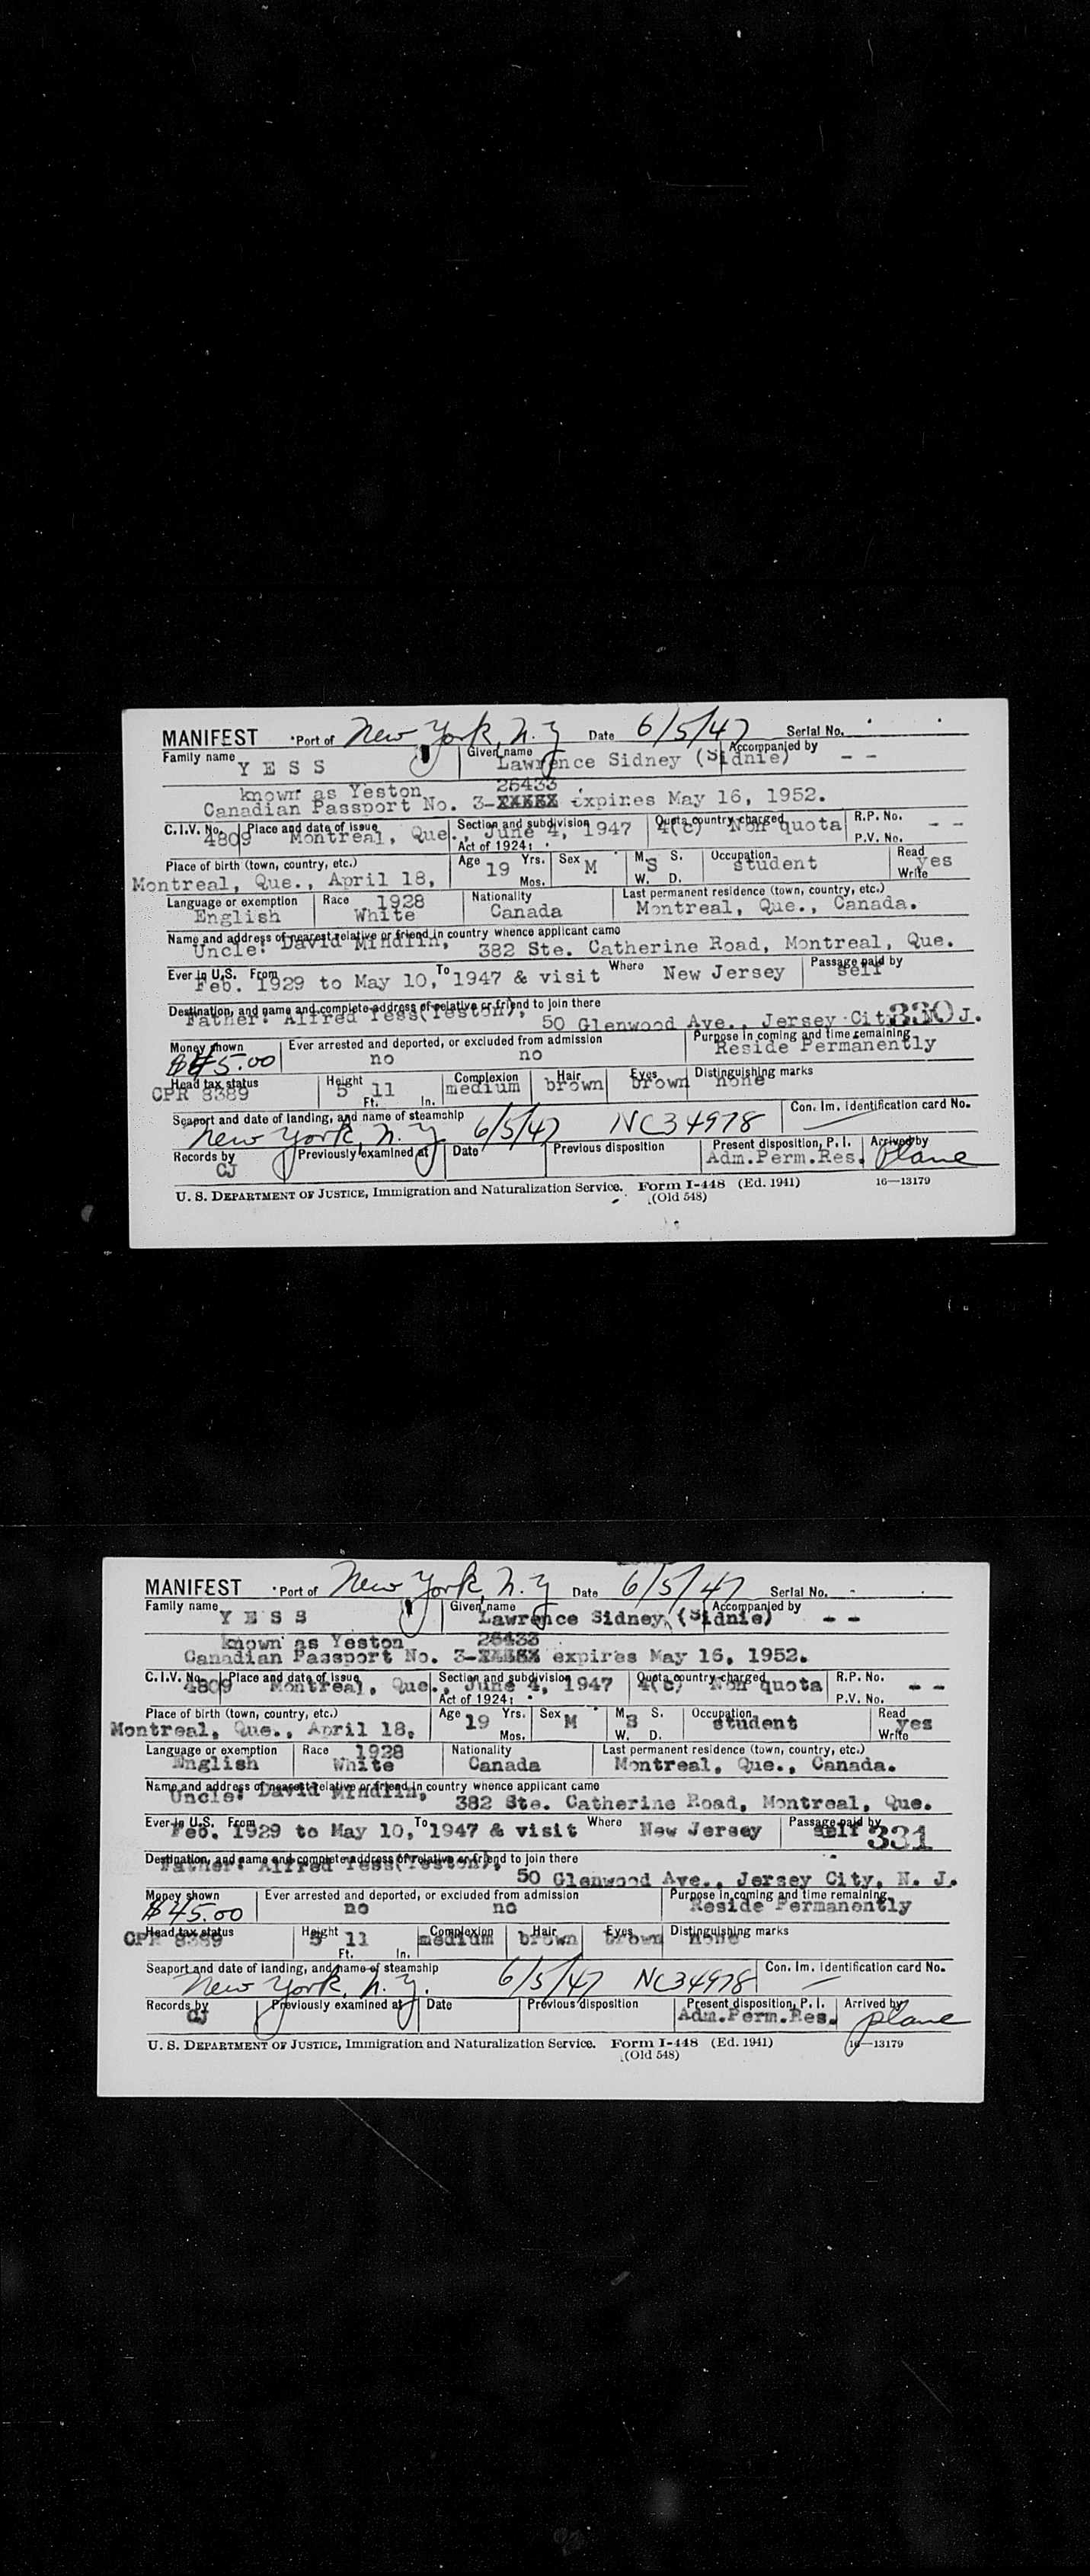 MANIFEST *Port of New York, N.Y Date 6/5/47 Serial No.
Family name YESS Given name Lawrence Sidney (Sidnie) Accompanied by - -
known as Yeston 26433
Canadian Passport No. 3-XXXXX expires May 16, 1952.
C.I.V. No. 4809 Place and date of issue Montreal, Que., June 4, 1947 Section and subdivision Act of 1924: 4(c) Quota country charged Non quota R.P. No. P.V. No. - -
Place of birth (town, country, etc.) Montreal, Que., April 18, Age 19 Yrs. Mos. Sex M M. S. W. D. S Occupation student Read Write yes
Language or exemption English Race 1928 White Nationality Canada Last permanent residence (town, country, etc.) Montreal, Que., Canada.
Name and address of nearest relative or friend in country whence applicant came
Uncle: David Mindlin, 382 Ste. Catherine Road, Montreal, Que.
Ever in U.S. From Feb. 1929 to May 10, To 1947 & visit Where New Jersey Passage paid by self
Destination, and name and complete address of relative or friend to join there
Father: Alfred Yess(Yeston), 50 Glenwood Ave., Jersey City 330 J.
Money shown $45.00 Ever arrested and deported, or excluded from admission no no Purpose in coming and time remaining Reside Permanently
Head tax status CPR 8389 Height 5 Ft. 11 In. Complexion medium Hair brown Eyes brown Distinguishing marks none
Seaport and date of landing, and name of steamship New York, N.Y 6/5/47 NC34978 Con. Im. identification card No.
Records by CJ Previously examined at Date Previous disposition Present disposition, P. I. Adm.Perm.Res. Arrived by Plane
U. S. DEPARTMENT OF JUSTICE, Immigration and Naturalization Service. Form I-448 (Ed. 1941) 16—13179
(Old 548)
MANIFEST *Port of New York, N.Y Date 6/5/47 Serial No.
Family name YESS Given name Lawrence Sidney (Sidnie) Accompanied by - -
known as Yeston 26433
Canadian Passport No. 3-XXXXX expires May 16, 1952.
C.I.V. No. 4809 Place and date of issue Montreal, Que., June 4, 1947 Section and subdivision Act of 1924: 4(c) Quota country charged Non quota R.P. No. P.V. No. - -
Place of birth (town, country, etc.) Montreal, Que., April 18, Age 19 Yrs. Mos. Sex M M. S. W. D. S Occupation student Read Write yes
Language or exemption English Race 1928 White Nationality Canada Last permanent residence (town, country, etc.) Montreal, Que., Canada.
Name and address of nearest relative or friend in country whence applicant came
Uncle: David Mindlin, 382 Ste. Catherine Road, Montreal, Que.
Ever in U.S. From Feb. 1929 to May 10, To 1947 & visit Where New Jersey Passage paid by self 331
Destination, and name and complete address of relative or friend to join there
Father: Alfred Yess(Yeston), 50 Glenwood Ave., Jersey City, N. J.
Money shown $45.00 Ever arrested and deported, or excluded from admission no no Purpose in coming and time remaining Reside Permanently
Head tax status CPR 8389 Height 5 Ft. 11 In. Complexion medium Hair brown Eyes brown Distinguishing marks none
Seaport and date of landing, and name of steamship New York, N.Y. 6/5/47 NC34978 Con. Im. identification card No.
Records by CJ Previously examined at Date Previous disposition Present disposition, P. I. Adm.Perm.Res. Arrived by plane
U. S. DEPARTMENT OF JUSTICE, Immigration and Naturalization Service. Form I-448 (Ed. 1941) 16—13179
(Old 548)